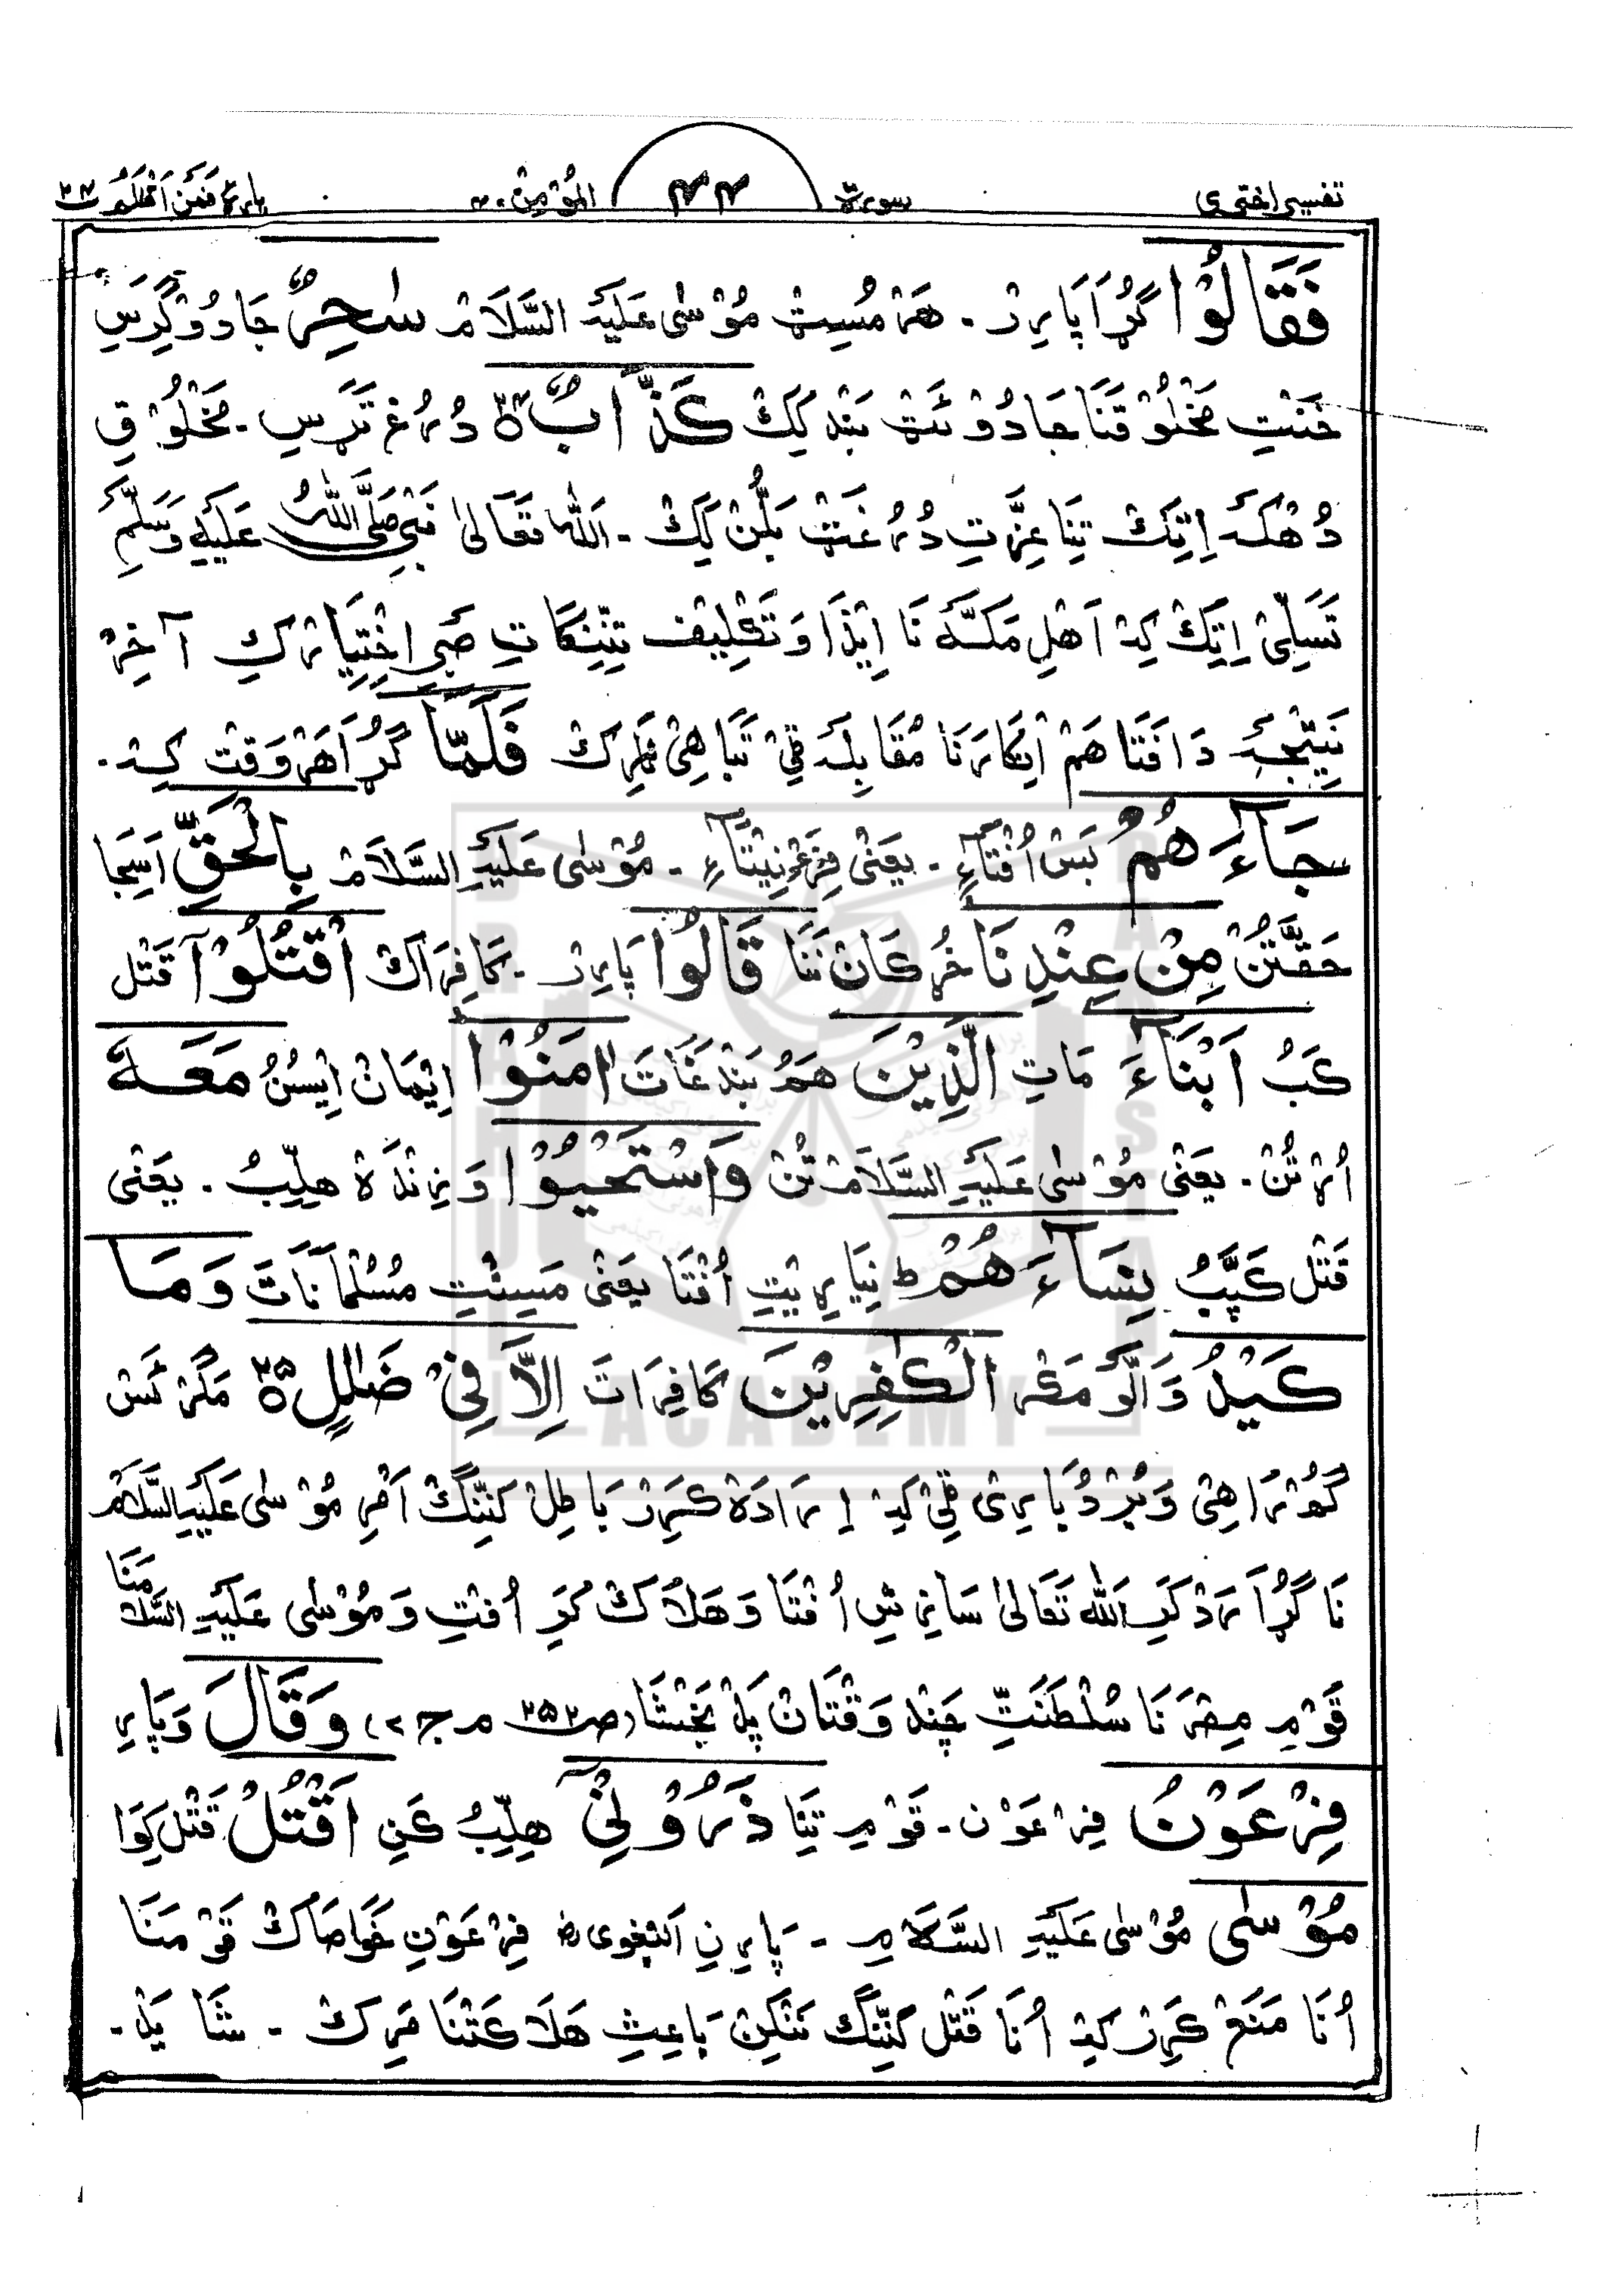 تفسیر اختری سورة ۴۴ المؤمن ۴۰ پارہ فمن اظلم ۲۴
فَقَالُوْا گُڑَا پَارِرْ۔ ہَرْ مُسِتْ مُوْسٰی عَلَیْہِ السَّلَامْ سٰحِرٌ جَادُوْگَرَسِ
خَنْتِ مَخْلُوْقْنَا جَادُوْ ئَتْ بَنْدِکِکْ کَذَّابٌ ۲۴ دُرُغ تَرَسِ۔ مَخْلُوْقِ
دُھْکَہ اِتِکْ تِنَا عِزَّتِ دُرُغَتْ بَلُّنْ کِکْ۔ اَللہ تَعَالٰی نَبِی صَلَّی اللہُ عَلَیْہِ وَسَلَّمِ
تَسَلِّیْ اِتِکْ کِہ اَھْلِ مَکَّہ نَا اِیْذَا وَ تَکْلِیْف تِنِنْکَاتِ صَبْرِ اِخْتِیَارْ کِ آخِرْ
نَتِیْجَہِ دَافَتَا ھَمْ اِنْکَارَنَا مُقَابِلَہ ٹِیْ تَبَاھِیْ مَرِکْ فَلَمَّا گُڑَا ھَرْوَقْتْ کِہ۔
جَآءَھُمْ بَسْ اُفْتَآءِ۔ یَعْنِی فِرْعَوْنِیْتَآءِ۔ مُوْسٰی عَلَیْہِ السَّلَامْ بِالْحَقِّ اَسِجَا
حَقَّتُنْ مِنْ عِنْدِنَا خُڑکَانْ نَنَا قَالُوْا پَارِرْ۔ کَافِرَاکْ اقْتُلُوْآ قَتْل
کَبُ اَبْنَآءَ مَاتِ الَّذِیْنَ ھَمُ بَنْدَغَاتَ اٰمَنُوْا اِیْمَانْ اِیْسُنُ مَعَہٗ
اُرْتُنْ۔ یَعْنِی مُوْسٰی عَلَیْہِ السَّلَامْ تُنْ وَاسْتَحْیُوْا وَ زِنْدَہْ ھِلِّبُ۔ یَعْنِی
قَتْل کَپَّبُ نِسَآءَھُمْ ط نِیَارِیْتِ اُفْتَا یَعْنِی مَسِنْتِ مُسُلْمَانَاتَ وَمَا
کَیْدُ وَ اَلَّوْ مَکْر الْکٰفِرِیْنَ کَافِرَاتَ اِلَّا فِیْ ضَلٰلٍ ۲۵ مَگَرْ ئَسْ
گُمْرَاھِیْ وَ بُرْدُبَارِیْ ٹِیْ کِہ اِرَادَہْ کَرِرْ بَاطِلْ کَنِّنْگْ اَمْرِ مُوْسٰی عَلَیْہِ السَّلَامْ
نَا گُڑَا رَدْ کَرِ اَللہ تَعَالٰی سَازِشِ اُفْتَا وَ ھَلَاکْ کَرِ اُفْتِ وَ مُوْسٰی عَلَیْہِ السَّلَامْنَا
قَوْمِ مِصْرَنَا سُلْطَنَتِّ چَنْد وَقْتَانْ پَدْ بَخْشَا (صـ ۳۵۲ م ج ۲) وَقَالَ وَ پَارِ
فِرْعَوْنُ فِرْعَوْن۔ قَوْمِ تِنَا ذَرُوْنِیْٓ ھِلِّبُ کَنِ اَقْتُلْ قَتْل کِوَا
مُوْسٰی مُوْسٰی عَلَیْہِ السَّلَامِ۔ پَارِنِ اَلْبَغَوِیْ رح فِرْعَوْنِ خَوَاصَاکْ قَوْمَنَا
اُنَا مَنَعْ کَرِرْ کِہ اُنَا قَتْل کَنِّنْگ نَنْکِنْ بَاعِثِ ھَلَاکَتْنَا مَرِکْ۔ شَا یَدْ۔